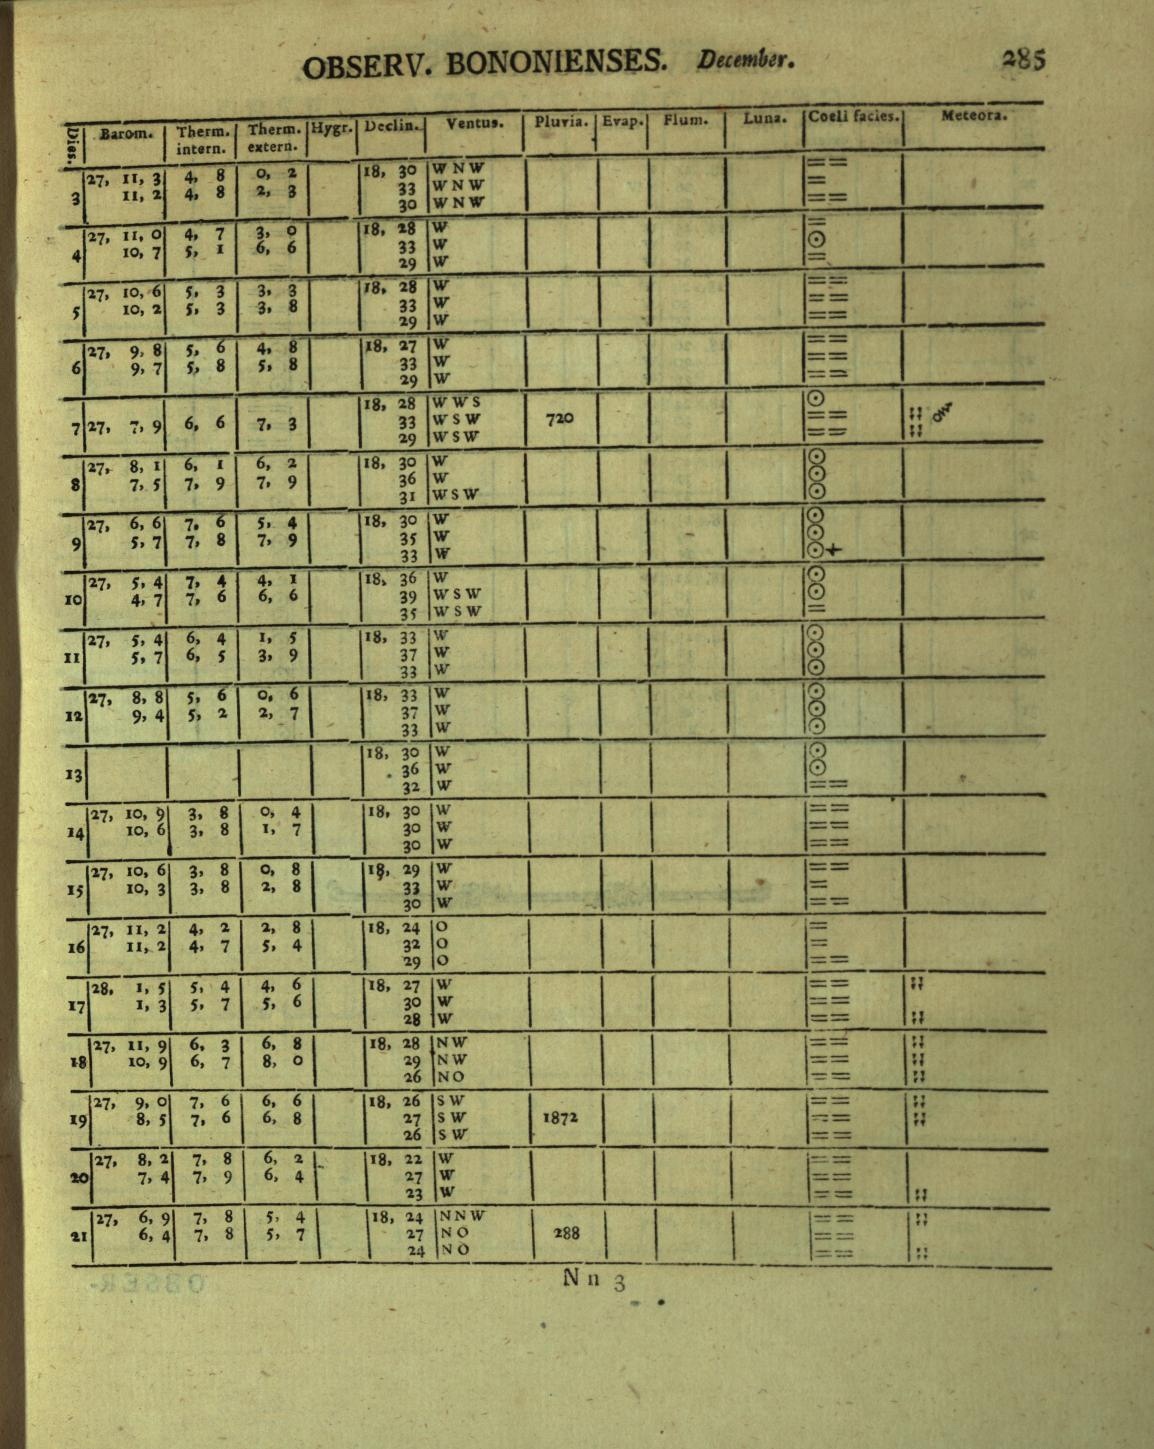 OBSERV. BONONIENSES. December. 285
Dies. Barom. Therm. intern. Therm. extern. Hygr. Declin. Ventus. Pluvia. Evap. Flum. Luna. Coeli facies. Meteora.
27, 11, 3 4, 8 0, 2 18, 30 W N W ==
3 11, 2 4, 8 2, 3 33 W N W =
30 W N W ==
27, 11, 0 4, 7 3, 0 18, 28 W =
4 10, 7 5, 1 6, 6 33 W ⊙
29 W =
27, 10, 6 5, 3 3, 3 18, 28 W ==
5 10, 2 5, 3 3, 8 33 W ==
29 W ==
27, 9, 8 5, 6 4, 8 18, 27 W ==
6 9, 7 5, 8 5, 8 33 W ==
29 W ==
18, 28 W W S ⊙
7 27, 7, 9 6, 6 7, 3 33 W S W 720 ==
29 W S W ==
27, 8, 1 6, 1 6, 2 18, 30 W ⊙
8 7, 5 7, 9 7, 9 36 W ⊙
31 W S W ⊙
27, 6, 6 7, 6 5, 4 18, 30 W ⊙
9 5, 7 7, 8 7, 9 35 W ⊙
33 W ⊙+
27, 5, 4 7, 4 4, 1 18, 36 W ⊙
10 4, 7 7, 6 6, 6 39 W S W ⊙
35 W S W =
27, 5, 4 6, 4 1, 5 18, 33 W ⊙
11 5, 7 6, 5 3, 9 37 W ⊙
33 W ⊙
27, 8, 8 5, 6 0, 6 18, 33 W ⊙
12 9, 4 5, 2 2, 7 37 W ⊙
33 W ⊙
18, 30 W ⊙
13 36 W ⊙
32 W ==
27, 10, 9 3, 8 0, 4 18, 30 W ==
14 10, 6 3, 8 1, 7 30 W ==
30 W ==
27, 10, 6 3, 8 0, 8 18, 29 W ==
15 10, 3 3, 8 2, 8 33 W =
30 W ==
27, 11, 2 4, 2 2, 8 18, 24 O =
16 11, 2 4, 7 5, 4 32 O =
29 O ==
28, 1, 5 5, 4 4, 6 18, 27 W == ;;
17 1, 3 5, 7 5, 6 30 W ==
28 W == ;;
27, 11, 9 6, 3 6, 8 18, 28 N W == ;;
18 10, 9 6, 7 8, 0 29 N W == ;;
26 N O == ;;
27, 9, 0 7, 6 6, 6 18, 26 S W == ;;
19 8, 5 7, 6 6, 8 27 S W 1872 == ;;
26 S W ==
27, 8, 2 7, 8 6, 2 18, 22 W ==
20 7, 4 7, 9 6, 4 27 W ==
23 W == ;;
27, 6, 9 7, 8 5, 4 18, 24 N N W == ;;
21 6, 4 7, 8 5, 7 27 N O 288 ==
24 N O == ;;
N n 3